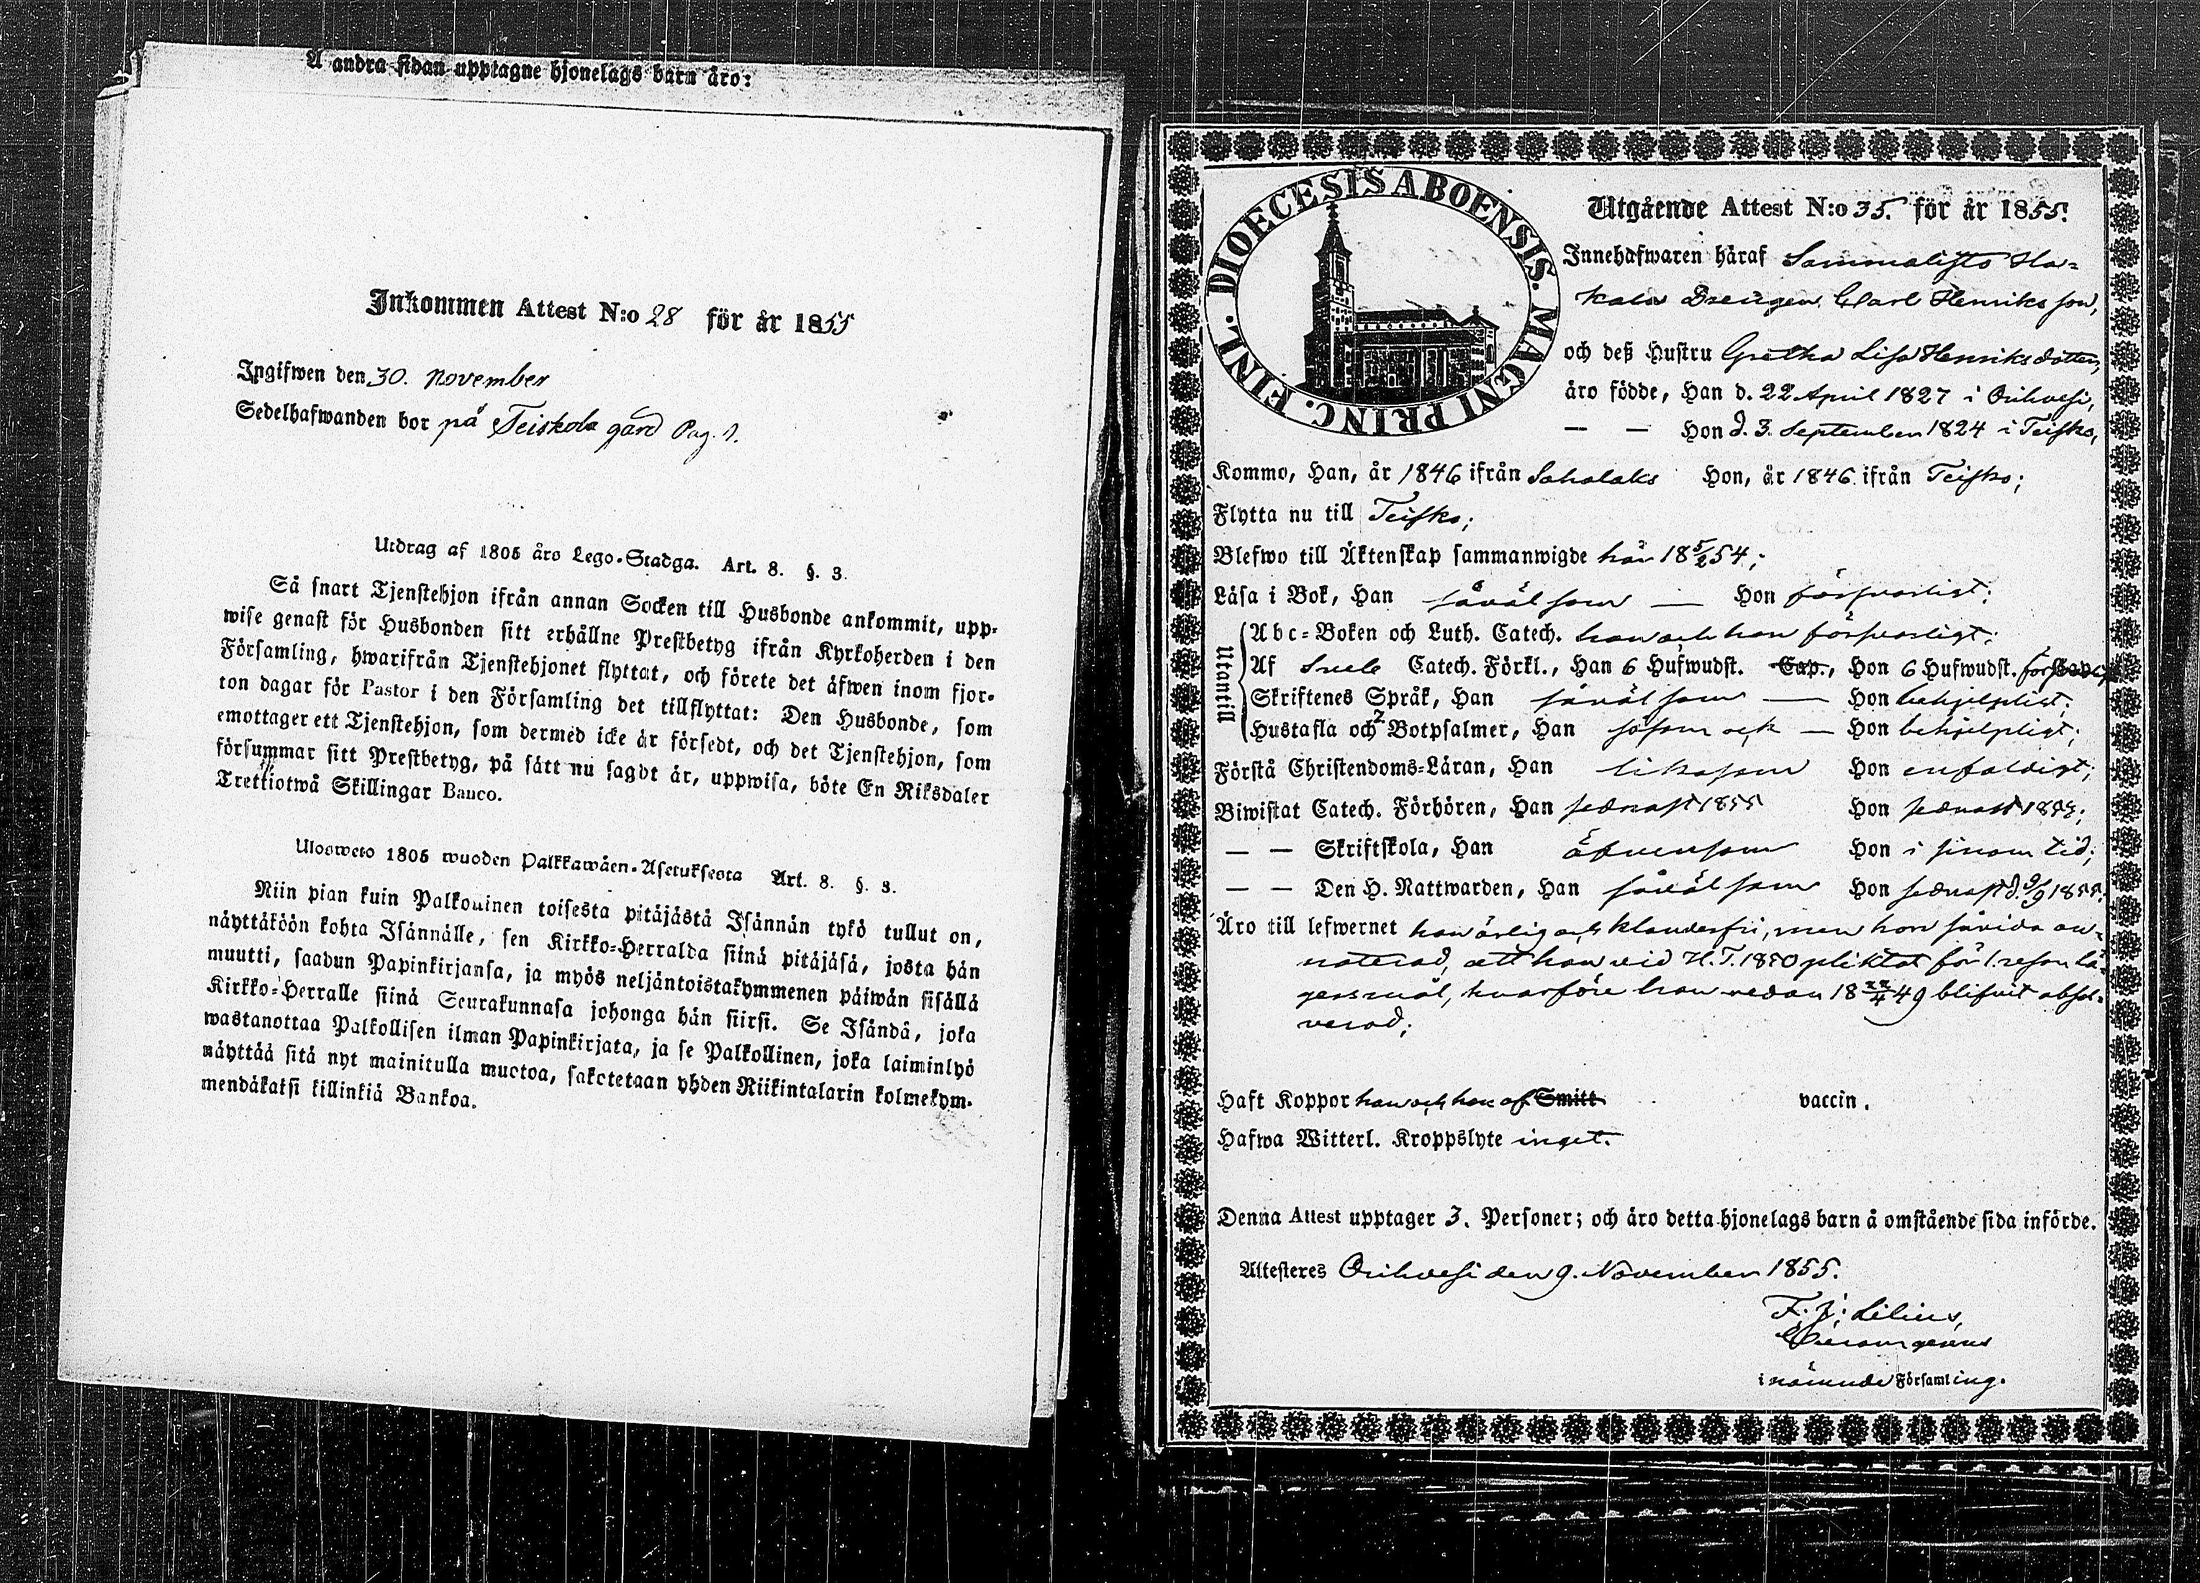 Å andra sidan upptagne hjonelags barn äro:
Inkommen Attest N:o 28 för år 1855
Ingifwen den 30. November
Sedelhafwanden bor på Teiskola gård Pag. 1.
Utdrag af 1805 åro Lego-Stadga. Art. 8. §. 3.
Så snart Tjenstehjon ifrån annan Socken till Husbonde ankommit, upp-
wise genast för Husbonden sitt erhållne Prestbetyg ifrån Kyrkoherden i den
Församling, hwarifrån Tjenstehjonet flyttat, och förete det äfwen inom fjor-
ton dagar för Pastor i den Församling det tillflyttat: Den Husbonde, som
emottager ett Tjenstehjon, som dermed icke är försedt, och det Tjenstehjon, som
försummar sitt Prestbetyg, på sätt nu sagdt är, uppwisa, böte En Riksdaler
Trettiotwå Skillingar Banco.
Ulosweto 1805 wuoden Palkkawäen-Asetuksesta Art. 8. §. 3.
Niin pian kuin Palkollinen toisesta pitäjästä Isännän tykö tullut on,
näyttäköön kohta Isännälle, sen Kirkko-Herralda siinä pitäjäsä, josta hän
muutti, saadun Papinkirjansa, ja myös neljäntoistakymmenen päiwän sisällä
Kirkko-Herralle siinä Seurakunnasa johonga hän siirsi. Se Isändä, joka
wastanottaa Palkollisen ilman Papinkirjata, ja se Palkollinen, joka laiminlyö
näyttää sitä nyt mainitulla muotoa, sakotetaan yhden Riikintalarin kolmekym-
mendäkaksi killinkiä Bankoa.
DIOECESIS ABOENSIS. MAGNI PRINC. FINL.
Utgående Attest N:o 35. för år 1855.
Innehafwaren häraf Sammalisto Ha-
kala Drengen Carl Henriksson,
och deß Hustru Gretha Lisa Henriksdotter,
äro födde, Han d. 22 April 1827 i Orihvesi,
— — Hon d. 3. September 1824 i Teisko,
Kommo, Han, år 1846 ifrån Sahalaks Hon, år 1846 ifrån Teisko;
Flytta nu till Teisko;
Blefwo till Äktenskap sammanwigde här 18 5/2 54;
Läsa i Bok, Han såväl som — Hon försvarligt;
Utantill
Abc-Boken och Luth. Catech. han och hon försvarligt;
Af Svebe Catech. Förkl., Han 6 Hufwudst. Cap., Hon 6 Hufwudst. Cap.
Skriftenes Språk, Han såväl som — Hon behjelpligt;
Hustafla och 7 Botpsalmer, Han såsom ock — Hon behjelpligt;
Förstå Christendoms-Läran, Han likasom Hon enfaldigt;
Biwistat Catech. Förhören, Han sednast 1855 Hon sednast
— — Skriftskola, Han äfvensom Hon i sinom tid;
— — Den H. Nattwarden, Han såväl som Hon sednast d. 9/9 1855.
Äro till lefwernet han ärlig och klanderfri, men hon såvida an-
noterad, att hon vid H. T. 1850 pliktat för 1. resan lä-
gersmål, hvarföre hon redan 18 22/4 49 blifvit absol-
verad;
Haft Koppor han och hon af Smitt vaccin.
Hafwa Witterl. Kroppslyte inget.
Denna Attest upptager 3. Personer; och äro detta hjonelags barn å omstående sida införde.
Attesteres Orihvesi den 9. November 1855.
F. J. Lilius,
i nämnde Församling.